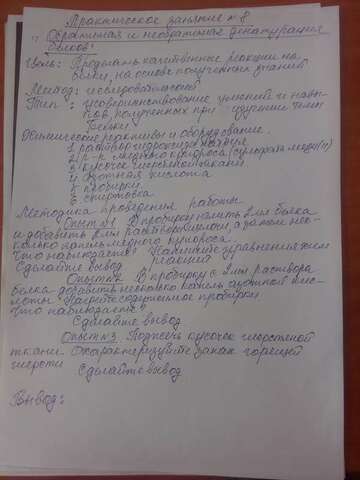 Практическое занятие №8
Обратимая и необратимая денатурация
белков.
Цель: Проделать качественные реакции на
белки, на основе полученных знаний
Метод: исследовательский
Тип: усовершенствование умений и навы-
ков, полученных при изучении темы
"Белки"
Химические реактивы и оборудование.
1. раствор гидроксида натрия
2. р-р медного купороса (сульфата меди(II))
3. кусочек шерстяной ткани
4. азотная кислота
5. пробирки
6. спиртовка
Методика проведения работы
Опыт №1 В пробирку налить 2 мл белка
и добавить 2 мл раствора, а затем нес-
колько капель медного купороса.
Что наблюдаете? Напишите уравнения хим
Сделайте вывод реакций
Опыт №2 В пробирку с 2 мл раствора
белка добавить несколько капель азотной кис-
лоты. Нагрейте содержимое пробирки
Что наблюдаете?
Сделайте вывод
Опыт №3 Поджечь кусочек шерстяной
ткани. Охарактеризуйте запах горящей
шерсти
Сделайте вывод
Вывод: